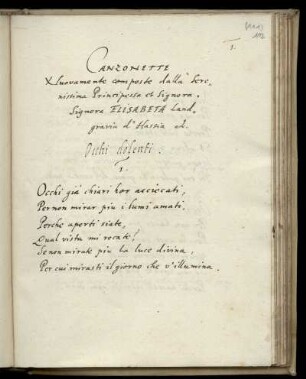 1.
CANZONETTE
Nuovamente composte dalla Sere-
nissima Principessa et Signora.
Signora ELISABETA Land-
gravia d'Hassia etc.
Occhi dolenti.
1.
Occhi già chiari hor acciecati,
Per non mirar piu i lumi amati.
Perche aporti siate,
Qual vista mi rocate?
Se non mirate piu la luce divina,
Per cui mirasti il giorno che v'illumina.